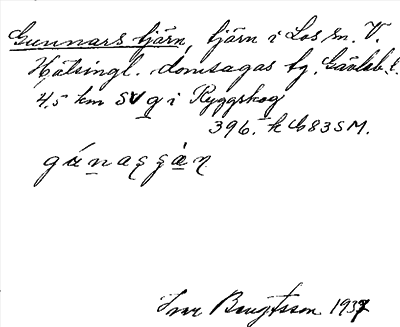 Gunnars tjärn, tjärn i Los sn. V.
Hälsingl. domsagas tg. Gävleb. l.
4,5 km SV g i Ryggskog
396. k 683 S M.
Ivar Bengtsson 1937